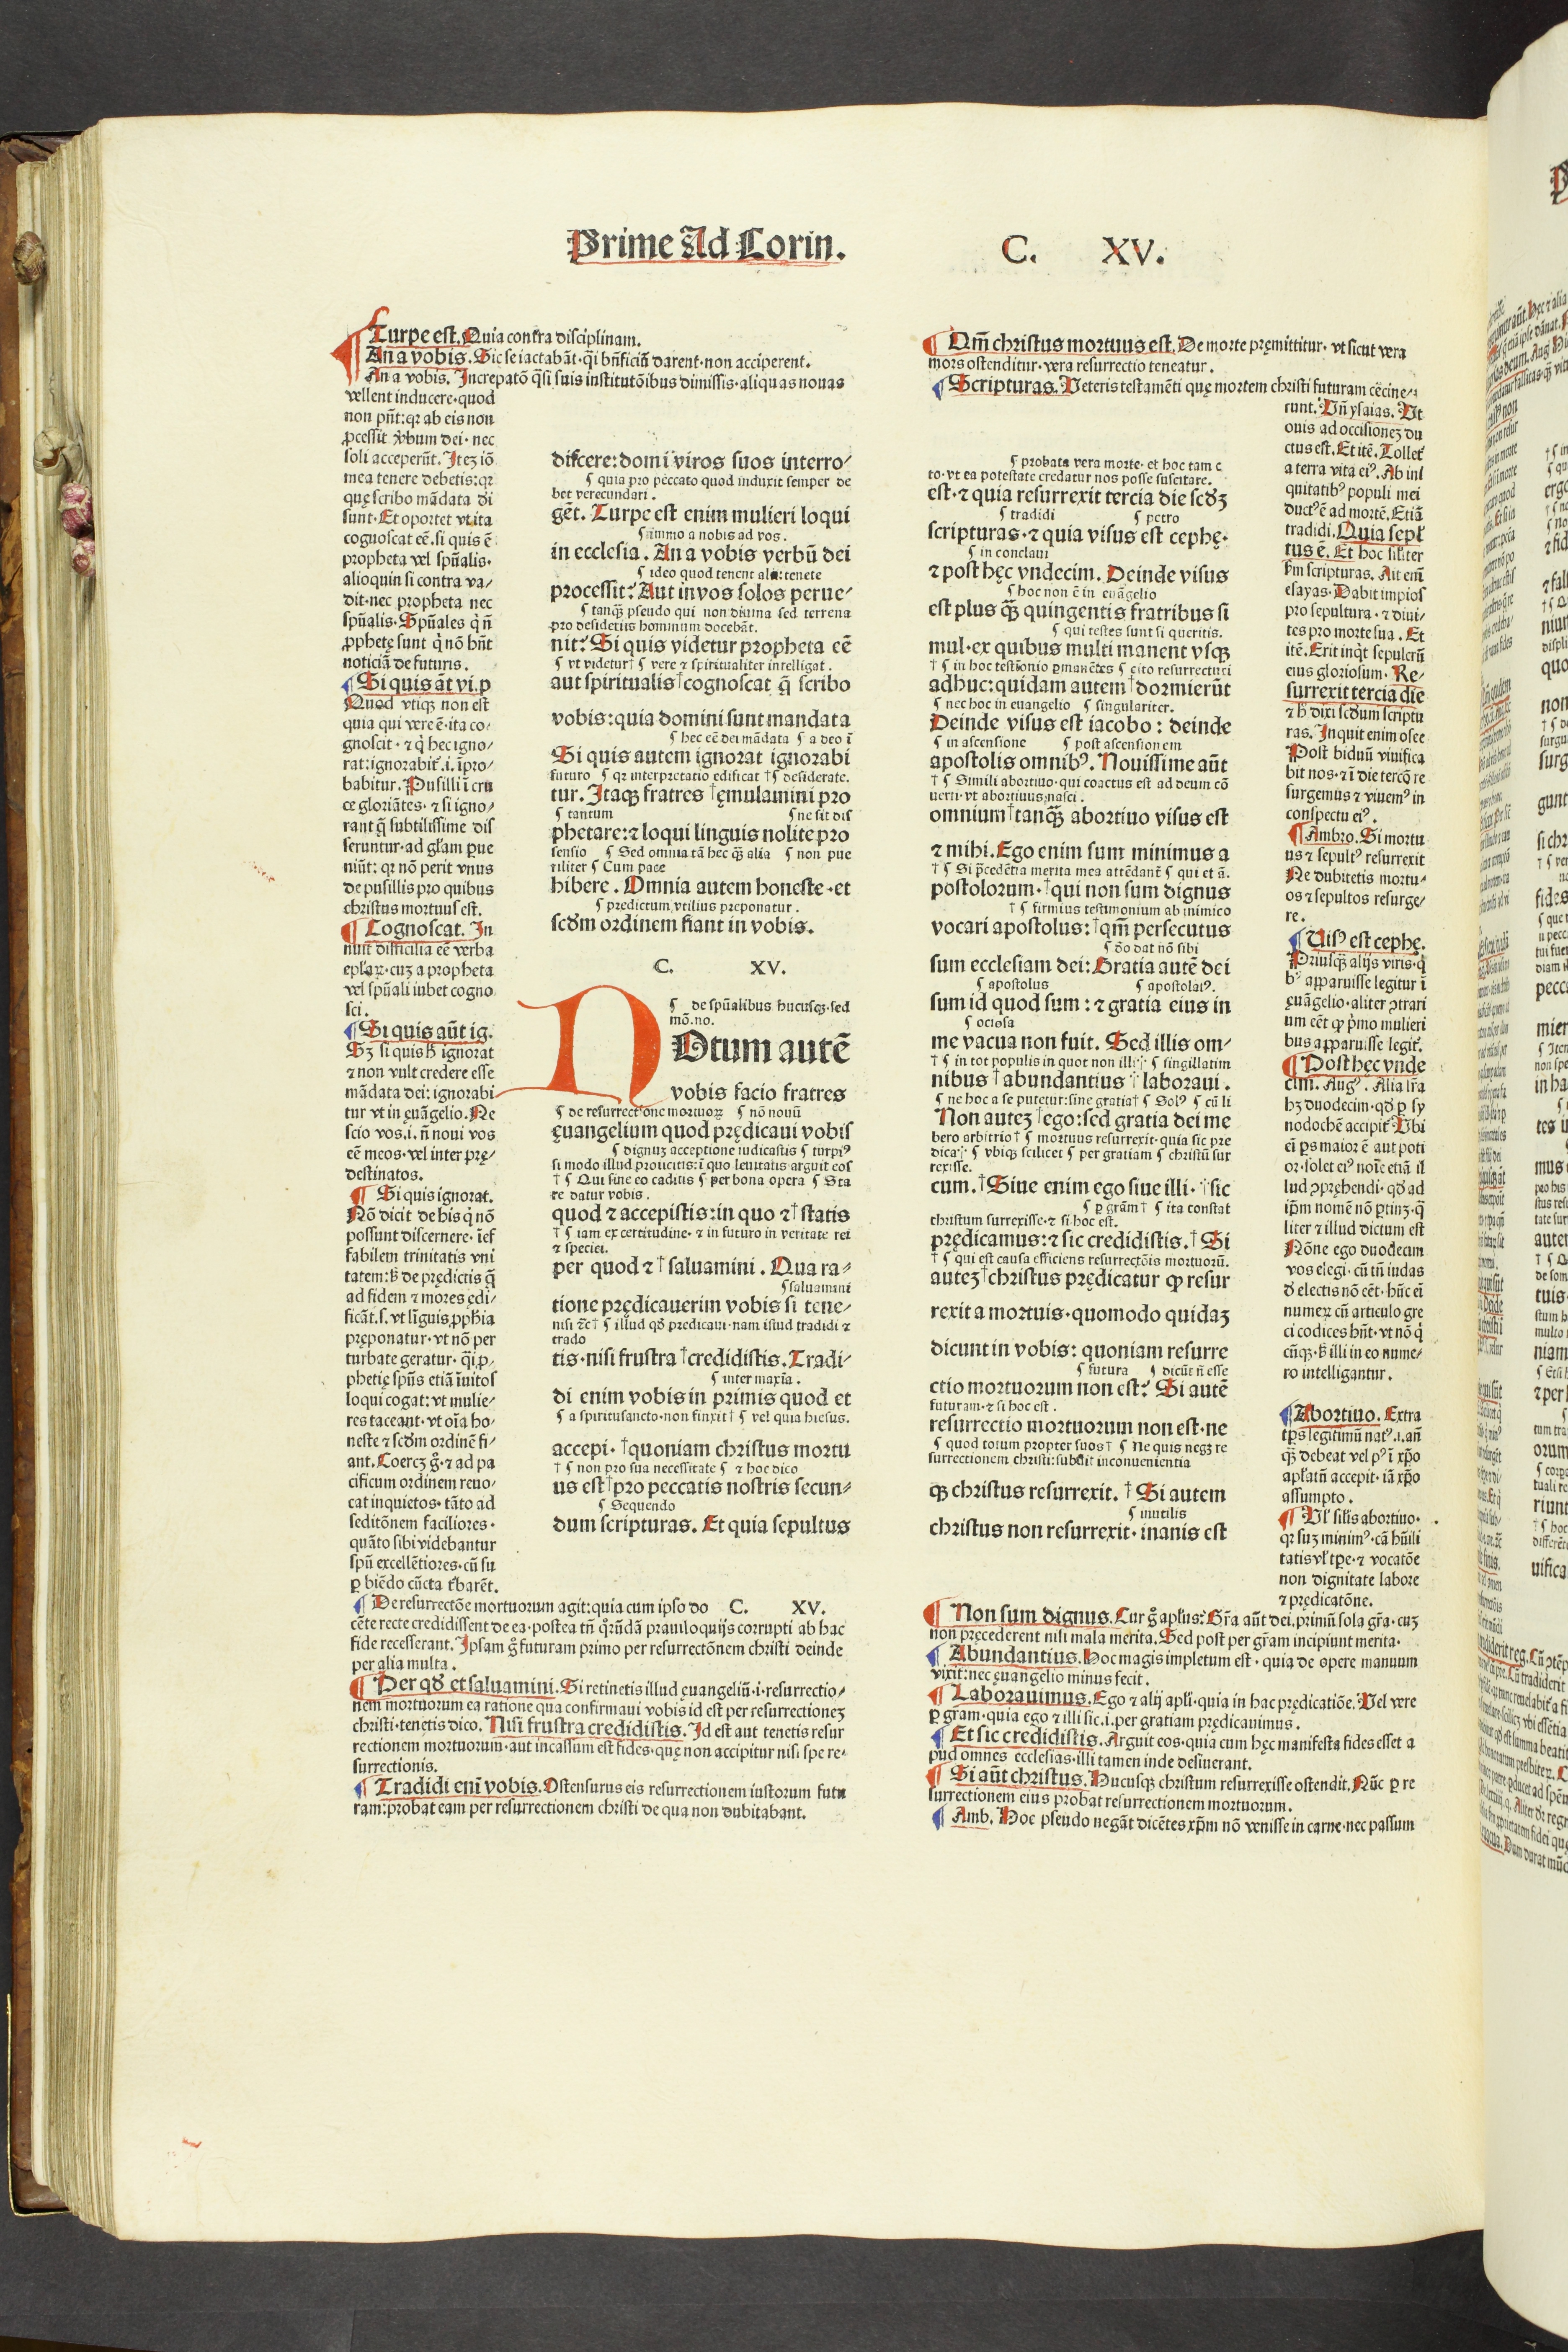 Prime Ad Corin. C. XV.
Turpe est. Quia contra disciplinam.
An a vobis. Sic se iactabãt·q̃i bñficiũ darent·non acciperent.
An a vobis. Increpatõ q̃si suis institutõibus dimissis·aliquas nouas
vellent inducere·quod
non pñt:qꝛ ab eis non
ꝓcessit v̉bum dei·nec
soli acceperũt. Iteꝫ iõ
mea tenere debetis:qꝛ
quę scribo mãdata di
sunt·Et oportet vt ita
cognoscat eē.si quis ē
propheta vel spũalis·
alioquin si contra va⸗
dit·nec propheta nec
spũalis·Spũales q̇ ñ
ꝓphetę sunt q̇ nõ hñt
noticiã de futuris.
Si quis ãt vi.p
Quod vtiqꝫ non est
quia qui vere ē·ita co⸗
gnoscit·⁊ q̇ hec igno⸗
rat:ignorabit̉.i.ĩpro⸗
babitur. Pusilli ĩ cru
ce gloriãtes·⁊ si igno⸗
rant q̃ subtilissime dis
seruntur·ad gl̃am ꝑue
niũt: qꝛ nõ perit vnus
de pusillis pro quibus
christus mortuus est.
Cognoscat. In
nuit difficilia eē verba
epl̃aꝝ·cuꝫ a propheta
vel spũali iubet cogno
sci.
Si quis aũt ig.
Sꝫ si quis ħ ignorat
⁊ non vult credere esse
mãdata dei: ignorabi
tur vt in ęuãgelio. Ne
scio vos.i.ñ noui vos
eē meos·vel inter prę⸗
destinatos.
Si quis ignorat.
Nõ dicit de his q̇ nõ
possunt discernere·ĩef
fabilem trinitatis vni
tatem:ħ de prędictis q̃
ad fidem ⁊ mores ędi⸗
ficãt.s.vt lĩguis ꝓphĩa
pręponatur·vt nõ per
turbate geratur·q̃i ꝓ⸗
phetię spũs etiã ĩuitos
loqui cogat:vt mulie⸗
res taceant·vt oĩa ho⸗
neste ⁊ scd̃m ordinē fi⸗
ant. Coercꝫ g̊·⁊ ad pa
cificum ordinem reuo⸗
cat inquietos·tãto ad
seditõnem faciliores·
quãto sibi videbantur
spũ excellẽtiores·cũ su
ꝑ biẽdo cũcta t̉barẽt.
discere:domi viros suos interro⸗
¶ quia pro peccato quod induxit semper de
bet verecundari.
gẽt. Turpe est enim mulieri loqui
¶ immo a nobis ad vos.
in ecclesia. An a vobis verbũ dei
¶ ideo quod tenent alii:tenete
processit? Aut in vos solos perue⸗
¶ tanq̃ꝫ pseudo qui non diuina sed terrena
pro desideriis hominum docebãt.
nit? Si quis videtur propheta eē
¶ vt videtur† ¶ vere ⁊ spiritualiter intelligat.
aut spiritualis†cognoscat q̃ scribo
vobis:quia domini sunt mandata
¶ hec eē dei mãdata ¶ a deo ĩ
Si quis autem ignorat ignorabi
futuro ¶ qꝛ interpretatio edificat †¶ desiderate.
tur. Itaqꝫ fratres †ęmulamini pro
¶ tantum ¶ ne sit dis
phetare:⁊ loqui linguis nolite pro
sensio ¶ Sed omnia tã hec q̃ꝫ alia ¶ non pue
riliter ¶ Cum pace
hibere. Omnia autem honeste·et
¶ predictum vtilius preponatur.
scd̃m ordinem fiant in vobis.
C. XV.
¶ de spũalibus hucusqꝫ·sed
mõ.no.
NOtum autē
vobis facio fratres
¶ de resurrectione mortuoꝝ ¶ nõ nouũ
ęuangelium quod prędicaui vobis
¶ dignuꝫ acceptione iudicastis ¶ turpiꝰ
si modo illud proiicitis:ĩ quo leuitatis arguit eos
†¶ Qui sine eo caditis ¶ per bona opera ¶ Sta
re datur vobis.
quod ⁊ accepistis:in quo ⁊†statis
†¶ iam ex certitudine·⁊ in futuro in veritate rei
⁊ speciei.
per quod ⁊†saluamini. Qua ra⸗
¶ saluamini
tione prędicauerim vobis si tene⸗
nisi ⁊c̃† ¶ illud qđ predicaui·nam istud tradidi ⁊
trado
tis·nisi frustra †credidistis. Tradi⸗
¶ inter maxĩa.
di enim vobis in primis quod et
¶ a spiritusancto·non finxit† ¶ vel quia hiesus.
accepi·†quoniam christus mortu
†¶ non pro sua necessitate ¶ ⁊ hoc dico
us est†pro peccatis nostris secun⸗
¶ Sequendo
dum scripturas. Et quia sepultus
De resurrectõe mortuorum agit:quia cum ipso do C. XV.
cẽte recte credidissent de ea·postea tñ q̊rũdã prauiloquijs corrupti ab hac
fide recesserant. Ipsam g̊ futuram primo per resurrectõnem christi deinde
per alia multa.
Per qđ et saluamini. Si retinetis illud ęuangeliũ·i·resurrectio⸗
nem mortuorum ea ratione qua confirmaui vobis id est per resurrectioneꝫ
christi·tenetis dico. Nisi frustra credidistis. Id est aut tenetis resur
rectionem mortuorum·aut incassum est fides·quę non accipitur nisi spe re⸗
surrectionis.
Tradidi eni vobis. Ostensurus eis resurrectionem iustorum futu
ram:probat eam per resurrectionem christi de qua non dubitabant.
Qm̃ christus mortuus est. De morte pręmittitur·vt sicut vera
mors ostenditur·vera resurrectio teneatur.
Scripturas. Veteris testamẽti quę mortem christi futuram cẽcine⸗
runt. Vñ ysaias. Vt
ouis ad occisioneꝫ du
ctus est. Et itē. Tollet̉
a terra vita eiꝰ. Ab ini
quitatibꝰ populi mei
ductꝰ ē ad mortē. Etiã
tradidi. Quia sepl̃
tus ē. Et hoc sil̃iter
ẜm scripturas. Ait eni
esayas. Dabit impios
pro sepultura·⁊ diui⸗
tes pro morte sua. Et
itē. Erit inq̇t sepulcrũ
eius gloriosum. Re⸗
surrexit tercia die
⁊ ħ dixi scđum scriptu
ras. Inquit enim osee
Post biduũ viuifica
bit nos·⁊ ĩ die tercõ re
surgemus ⁊ viuemꝰ in
conspectu eiꝰ.
Ambro. Si mortu
us ⁊ sepultꝰ resurrexit
Ne dubitetis mortu⸗
os ⁊ sepultos resurge⸗
re.
Uisꝰ est cephę.
Priusqꝫ alijs viris·q̇
bꝰ apparuisse legitur ĩ
ęuãgelio·aliter ꝯtrari
um eēt ꝙ p̉mo mulieri
bus apparuisse legit̉.
Post hęc vnde
cim. Augꝰ. Alia lr̃a
hꝫ duodecim·qđ ꝑ sy
nodochē accipit̉. Vbi
ei ps maior ē aut poti
or·solet eiꝰ noĩe etiã il
lud ꝯprehendi·qđ ad
ip̃m nomē nõ ꝑtinꝫ·q̃
liter ⁊ illud dictum est
Nõne ego duodecim
vos elegi·cũ tñ iudas
đ electis nõ eēt·hũc ei
numeꝝ cũ articulo gre
ci codices hñt·vt nõ q̇
cũqꝫ·ħ illi in eo nume⸗
ro intelligantur.
Abortiuo. Extra
tp̃s legitimũ natꝰ.i.añ
q̃ꝫ debeat vel pꝰ ĩ xp̃o
apl̃atũ accepit·iã xp̃o
assumpto.
Vl̉ sil̃is abortiuo·
qꝛ suꝫ minimꝰ·cã hũili
tatis vl̉ tp̃e·⁊ vocatõe
non dignitate labore
⁊ prędicatõne.
¶ probata vera morte·et hoc tam c
to·vt ea potestate credatur nos posse suscitare.
est·⁊ quia resurrexit tercia die scđꝫ
¶ tradidi ¶ petro
scripturas·⁊ quia visus est cephę·
¶ in conclaui
⁊ post hęc vndecim. Deinde visus
¶ hoc non ē in euãgelio
est plus q̃ꝫ quingentis fratribus si
¶ qui testes sunt si queritis.
mul·ex quibus multi manent vsqꝫ
†¶ in hoc testĩonio ꝑmanẽtes ¶ cito resurrecturi
adhuc:quidam autem†dormierũt
¶ nec hoc in euangelio ¶ singulariter.
Deinde visus est iacobo: deinde
¶ in ascensione ¶ post ascensionem
apostolis omnibꝰ. Nouissime aũt
†¶ Simili abortiuo·qui coactus est ad deum cõ
uerti·vt abortiuus nasci.
omnium†tanq̃ꝫ abortiuo visus est
⁊ mihi. Ego enim sum minimus a
†¶ Si p̃cedẽtia merita mea attẽdant̃ ¶ qui et ã.
postolorum·†qui non sum dignus
†¶ firmius testimonium ab inimico
vocari apostolus:†qm̃ persecutus
¶ đo dat nõ sibi
sum ecclesiam dei: Gratia autē dei
¶ apostolus ¶ apostolatꝰ.
sum id quod sum: ⁊ gratia eius in
¶ ociosa
me vacua non fuit. Sed illis om⸗
†¶ in tot populis in quot non illi†¶ singillatim
nibus †abundantius †laboraui.
¶ ne hoc a se putetur:sine gratia† ¶ Solꝰ ¶ cũ li
Non auteꝫ†ego:sed gratia dei me
bero arbitrio† ¶ mortuus resurrexit·quia sic pre
dicaꝫ·¶ vbiqꝫ scilicet ¶ per gratiam ¶ christũ sur
rexisse.
cum.†Siue enim ego siue illi·†sic
¶ ꝑ grãm† ¶ ita constat
christum surrexisse·⁊ si hoc est.
prędicamus:⁊ sic credidistis.†Si
†¶ qui est causa efficiens resurrectõis mortuorũ.
auteꝫ†christus prędicatur ꝙ resur
rexit a mortuis·quomodo quidaꝫ
dicunt in vobis: quoniam resurre
¶ futura ¶ dicũt ñ esse
ctio mortuorum non est? Si autē
futuram·⁊ si hoc est.
resurrectio mortuorum non est·ne
¶ quod totum propter suos† ¶ Ne quis negꝫ re
surrectionem christi:subdit inconuenientia
qꝫ christus resurrexit.†Si autem
¶ inutilis
christus non resurrexit·inanis est
Non sum dignus. Cur g̊ apl̃us: Gr̃a aũt dei.primũ sola gr̃a·cuꝫ
non pręcederent nisi mala merita. Sed post per gr̃am incipiunt merita·
Abundantius. Hoc magis impletum est·quia de opere manuum
vixit:nec ęuangelio minus fecit.
Laborauimus. Ego ⁊ alij apl̃i·quia in hac prędicatiõe. Vel vere
ꝑ gram·quia ego ⁊ illi sic.i.per gratiam prędicauimus.
Et sic credidistis. Arguit eos·quia cum hęc manifesta fides esset a
pud omnes ecclesias·illi tamen inde desiuerant.
Si aũt christus. Hucusqꝫ christum resurrexisse ostendit. Nũc ꝑ re
surrectionem eius probat resurrectionem mortuorum.
Amb. Hoc pseudo negãt dicẽtes xp̃m nõ venisse in carne·nec passum